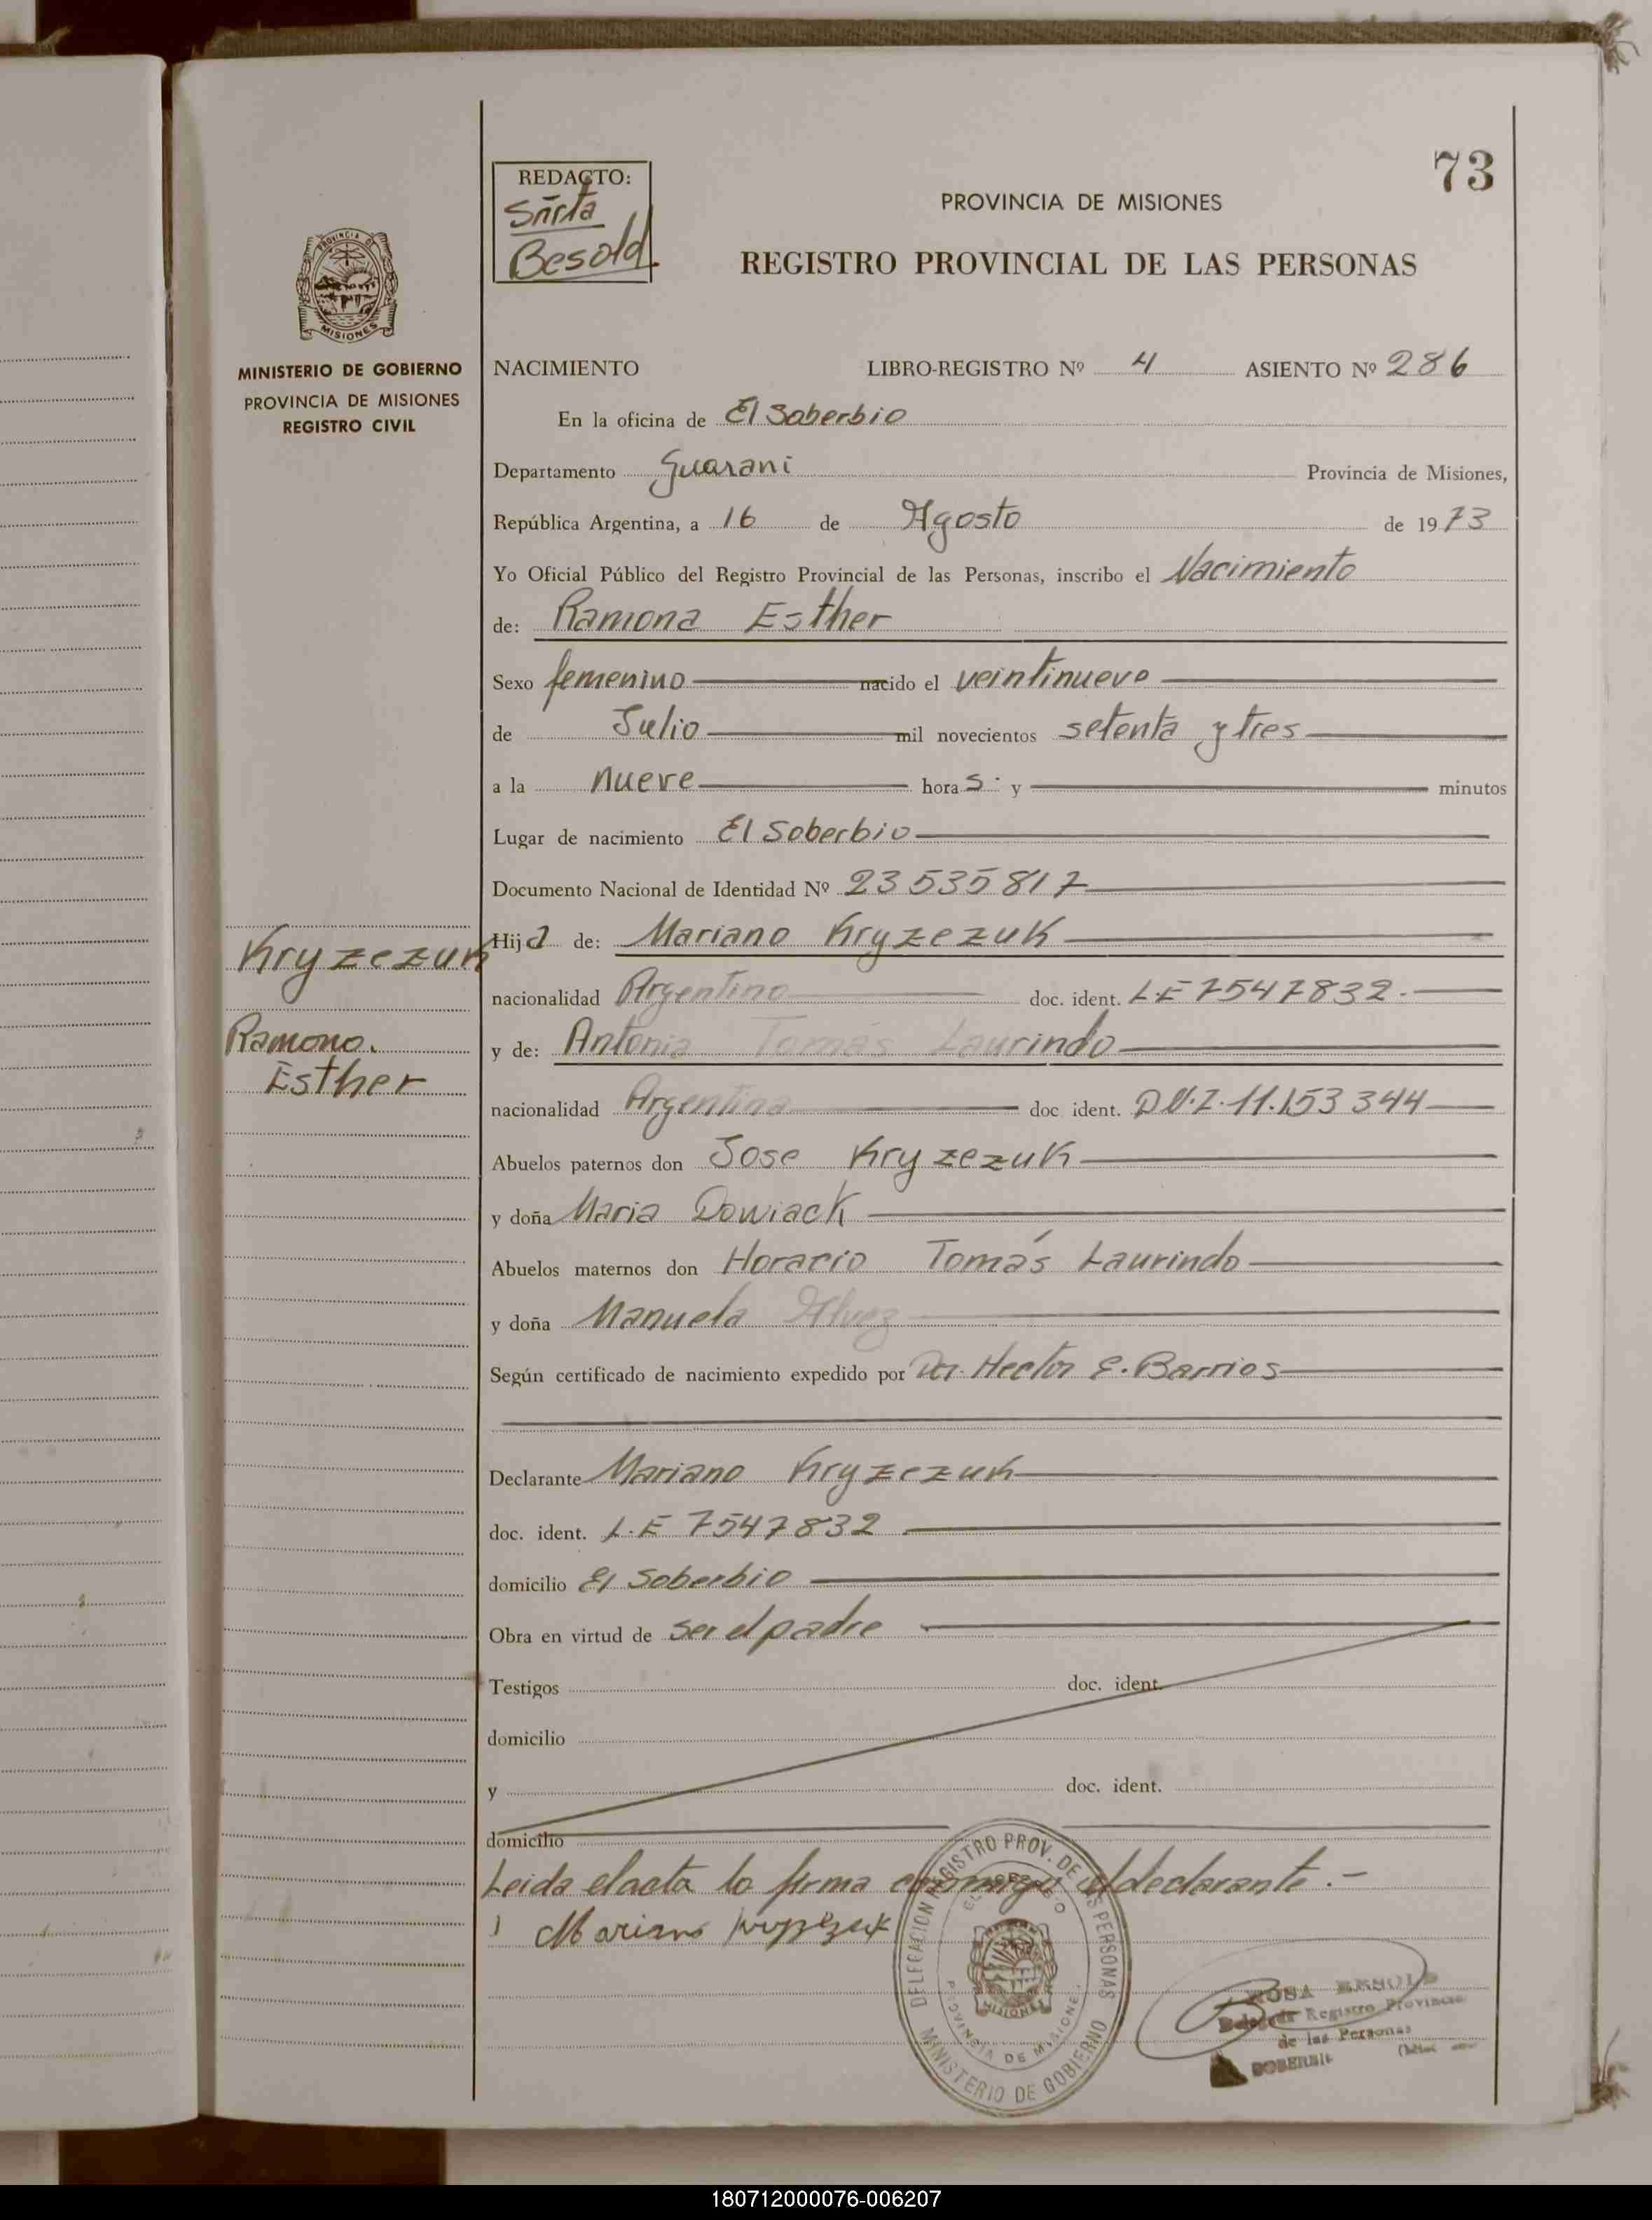 73
REDACTO:
Sñrta
Besold.
PROVINCIA DE MISIONES
REGISTRO PROVINCIAL DE LAS PERSONAS
PROVINCIA DE
MISIONES
MINISTERIO DE GOBIERNO
PROVINCIA DE MISIONES
REGISTRO CIVIL
NACIMIENTO LIBRO-REGISTRO Nº 4 ASIENTO Nº 286
En la oficina de El Soberbio
Departamento Guarani Provincia de Misiones,
República Argentina, a 16 de Agosto de 1973
Yo Oficial Público del Registro Provincial de las Personas, inscribo el Nacimiento
de: Ramona Esther
Sexo femenino nacido el veintinueve
de Julio mil novecientos setenta y tres
a la nueve horas y minutos
Lugar de nacimiento El Soberbio
Documento Nacional de Identidad Nº 23535817
Kryzezuk
Ramona.
Esther
Hija de: Mariano Kryzezuk
nacionalidad Argentino doc. ident. L.E 7547832.
y de: Antonia Tomás Laurindo
nacionalidad Argentina doc ident. D.N.I. 11.153344
Abuelos paternos don Jose Kryzezuk
y doña Maria Dowiack
Abuelos maternos don Horacio Tomás Laurindo
y doña Manuela Alvez
Según certificado de nacimiento expedido por Dr. Hector E. Barrios
Declarante Mariano Kryzezuk
doc. ident. L.E 7547832
domicilio El Soberbio
Obra en virtud de ser el padre
Testigos doc. ident.
domicilio
y doc. ident.
domicilio
Leida el acta la firma conmigo el declarante.-
Mariano
DELEGACION REGISTRO PROV. DE LAS PERSONAS
MINISTERIO DE GOBIERNO
PROVINCIA DE MISIONES
MISIONES
ROSA BESOLD
Registro Provincial
de las Personas
SOBERBIO
180712000076-006207